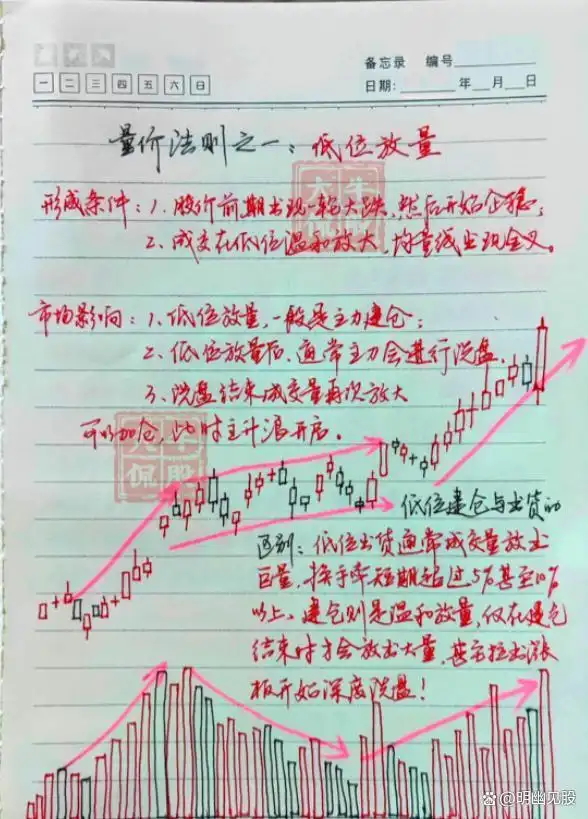 备忘录 编号
一 二 三 四 五 六 日
日期: 年 月 日
量价法则之一：低位放量
形成条件：1. 股价前期出现一轮大跌，然后开始企稳；
2. 成交在低位温和放大，均量线出现金叉。
市场影响：1、低位放量，一般是主力建仓；
2、低位放量后，通常主力会进行洗盘
3、洗盘结束成交量再次放大
可以加仓，此时主升浪开启。
大牛
侃股
大牛
侃股
低位建仓与出货的
区别：低位出货通常成交量放出
巨量，换手率短期超过5%甚至10%
以上，建仓则是温和放量，仅在建仓
结束时才会放出大量，甚至拉出涨
板开始深度洗盘！
@明幽见股